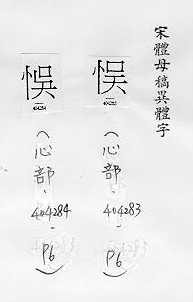 宋體母稿異體字
悞
(心部.
404283.
P6)
悞
(心部.
404284.
P6)